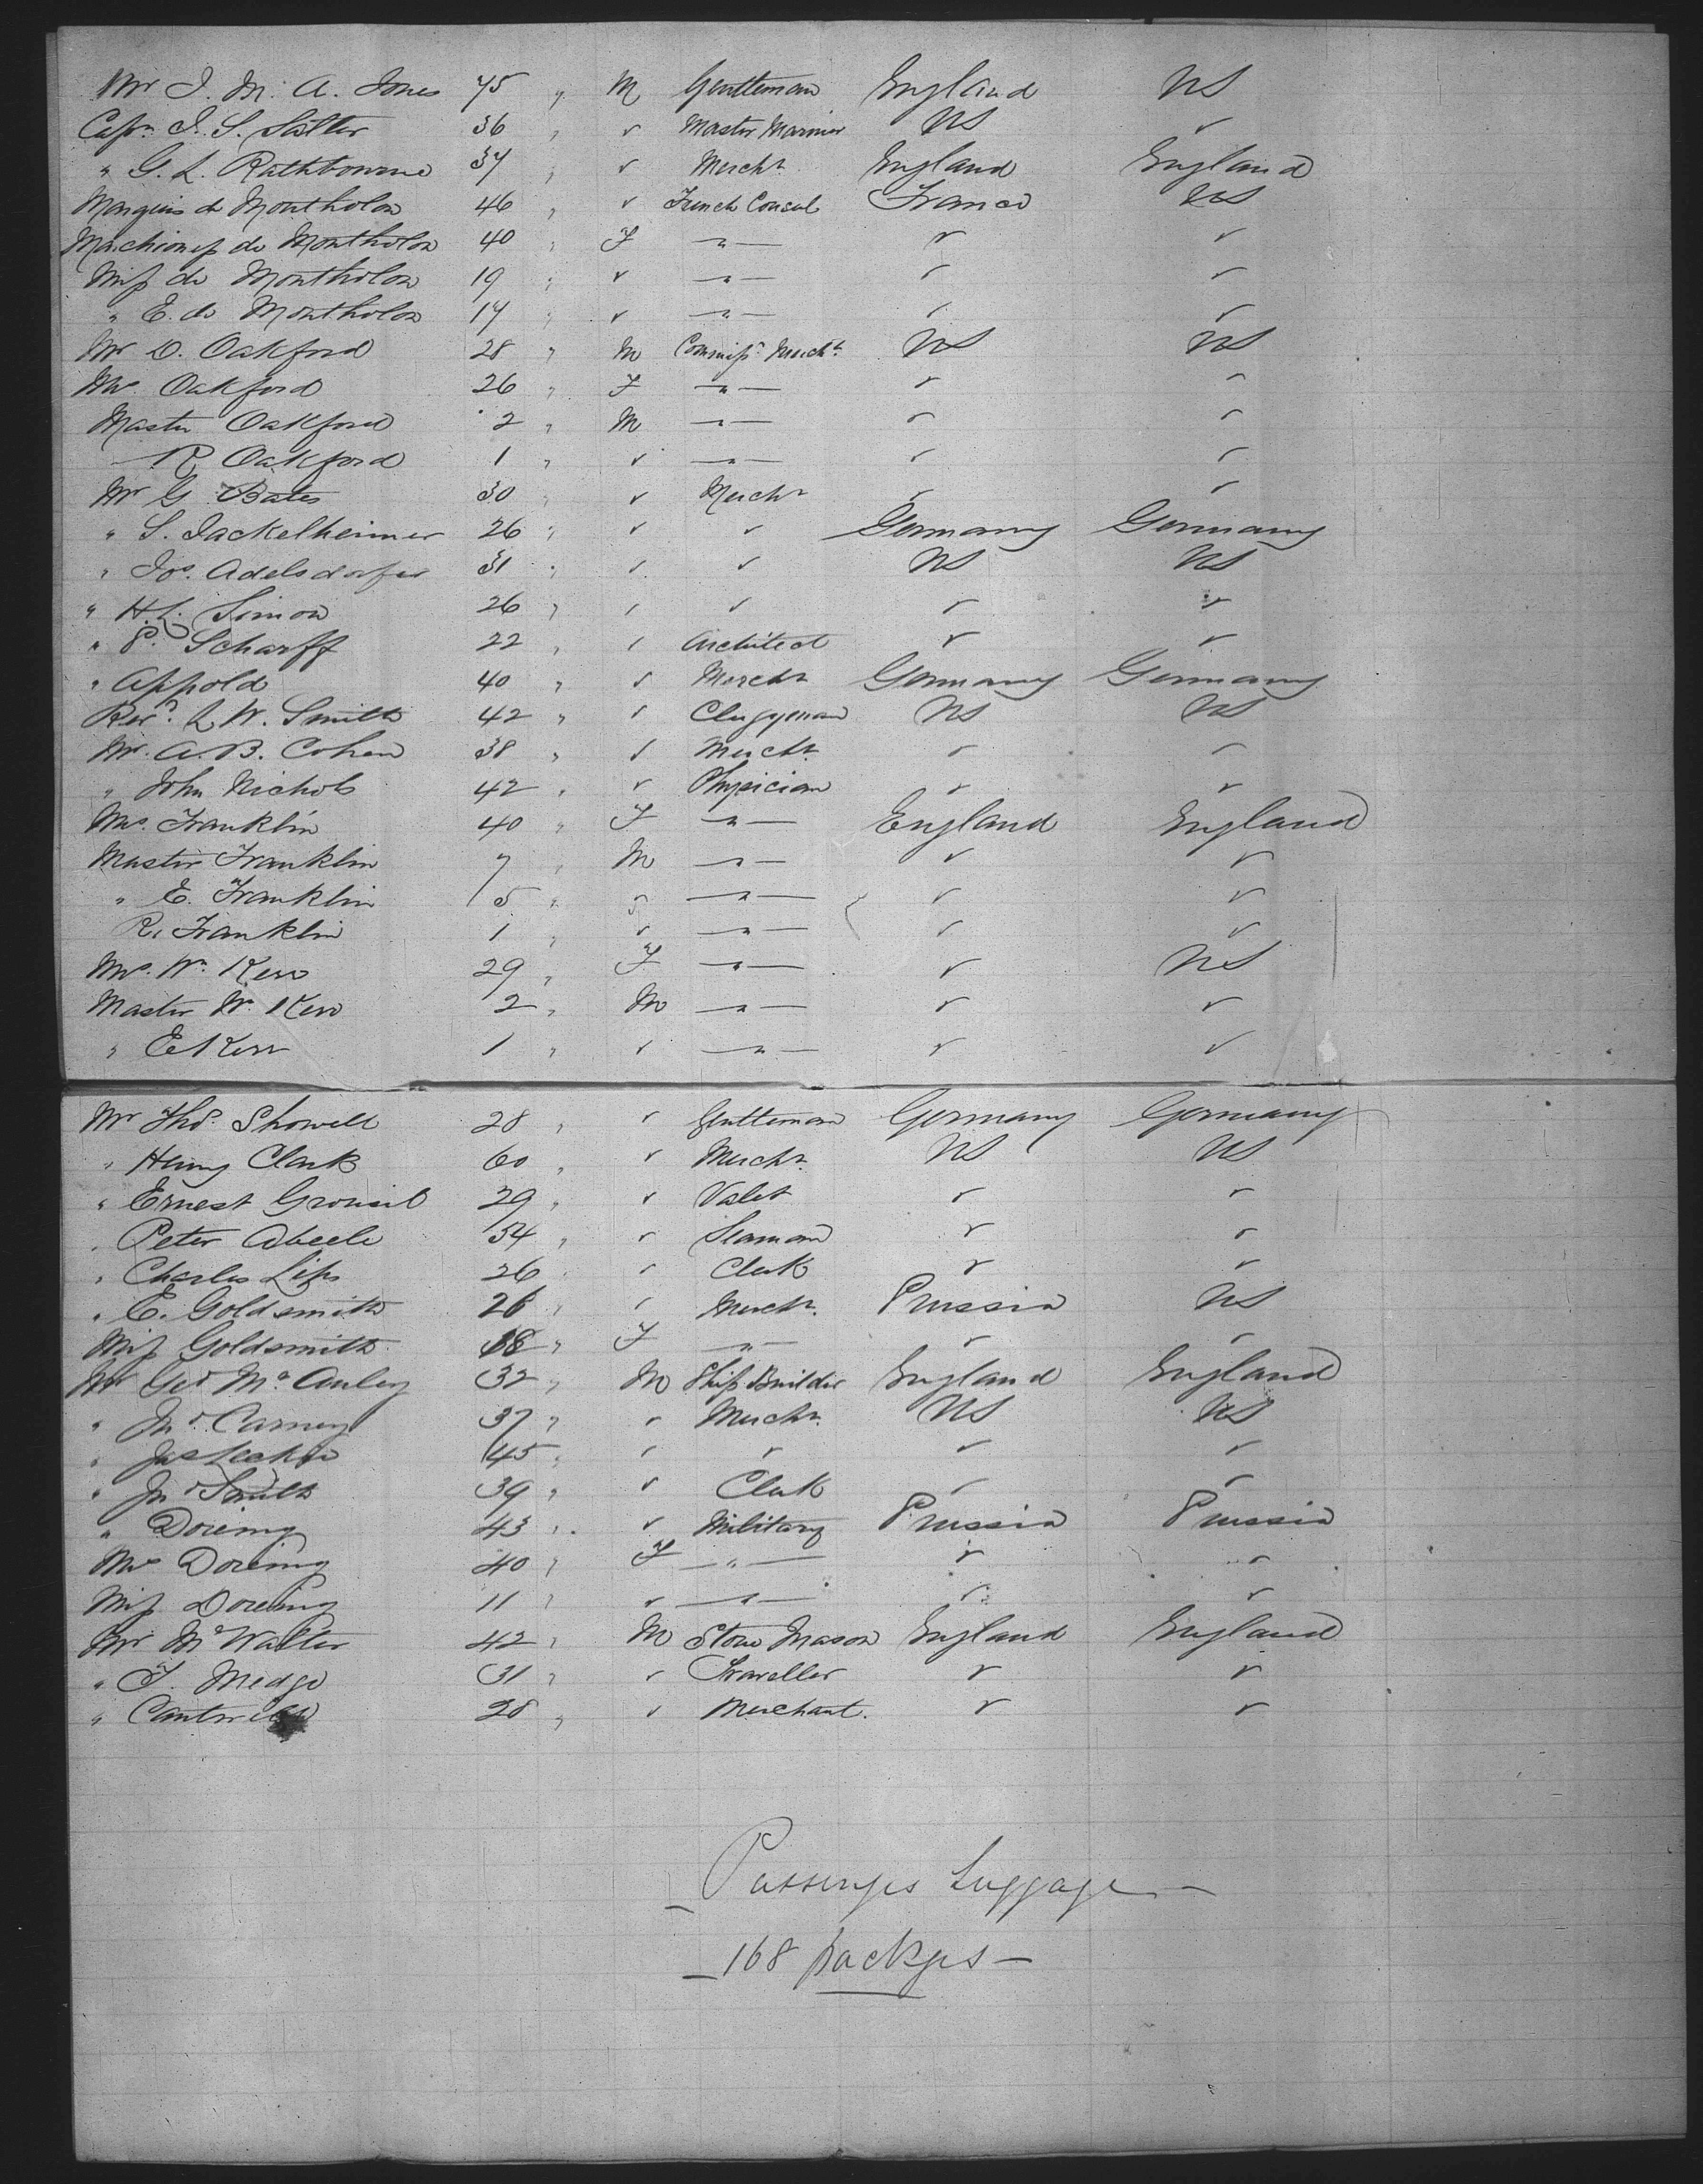 Mr J. M. A. Jones 45 " M Gentleman England US
Capn J. S. Salter 36 " " Master Mariner US "
" G. L. Rathbourne 37 " " Mercht England England
Marquis de Montholon 46 " " French Consul France US
Marchioness de Montholon 40 " F — " — " "
Miss de Montholon 19 " " — " — " "
" E. de Montholon 17 " " — " — " "
Mr D. Oakford 28 " M Commissn Mercht US US
Mrs Oakford 26 " F — " — " "
Master Oakford 2 " M — " — " "
R Oakford 1 " " — " — " "
Mr G Bates 30 " " Mercht " "
" S. Jackelheimer 26 " " " Germany Germany
" Jos. Adelsdorfer 31 " " " US US
" H. L. Simon 26 " " " " "
" P. Scharff 22 " " Architect " "
" Appold 40 " " Mercht Germany Germany
Revd L W. Smith 42 " " Clergyman US US
Mr. A. B. Cohen 38 " " Mercht " "
" John Nichols 42 " " Physician " "
Mrs. Franklin 40 " F — " — England England
Master Franklin 7 " M — " — " "
" E. Franklin 5 " " — " — " "
R. Franklin 1 " " — " — " "
Mrs. Wm Kerr 29 " F — " — " US
Master W. Kerr 2 " M — " — " "
" E Kerr 1 " " — " — " "
Mr Thos. Showell 28 " " Gentleman Germany Germany
" Henry Clark 60 " " Mercht US US
" Ernest 29 " " Valet " "
" Peter Abeele 34 " " Seaman " "
" Charles Lips 26 " " Clerk " "
" E. Goldsmith 26 " " Mercht. Prussia US
Miss Goldsmith 18 " F — " — " "
Mr Geo McAuley 32 " M Ship Builder England England
" Jno Carney 37 " " Mercht US US
" Jas 45 " " " " "
" Jno Smith 39 " " Clerk " "
" Doremy 43 " " Military Prussia Prussia
Mrs Doremy 40 " F — " — " "
Miss Doremy 11 " " — " — " "
Mr McWalter 42 " M Stone Mason England England
" T. Medge 31 " " Traveller " "
" Cantwell 28 " " Merchant. " "
— Passenges Luggage —
— 168 packges —